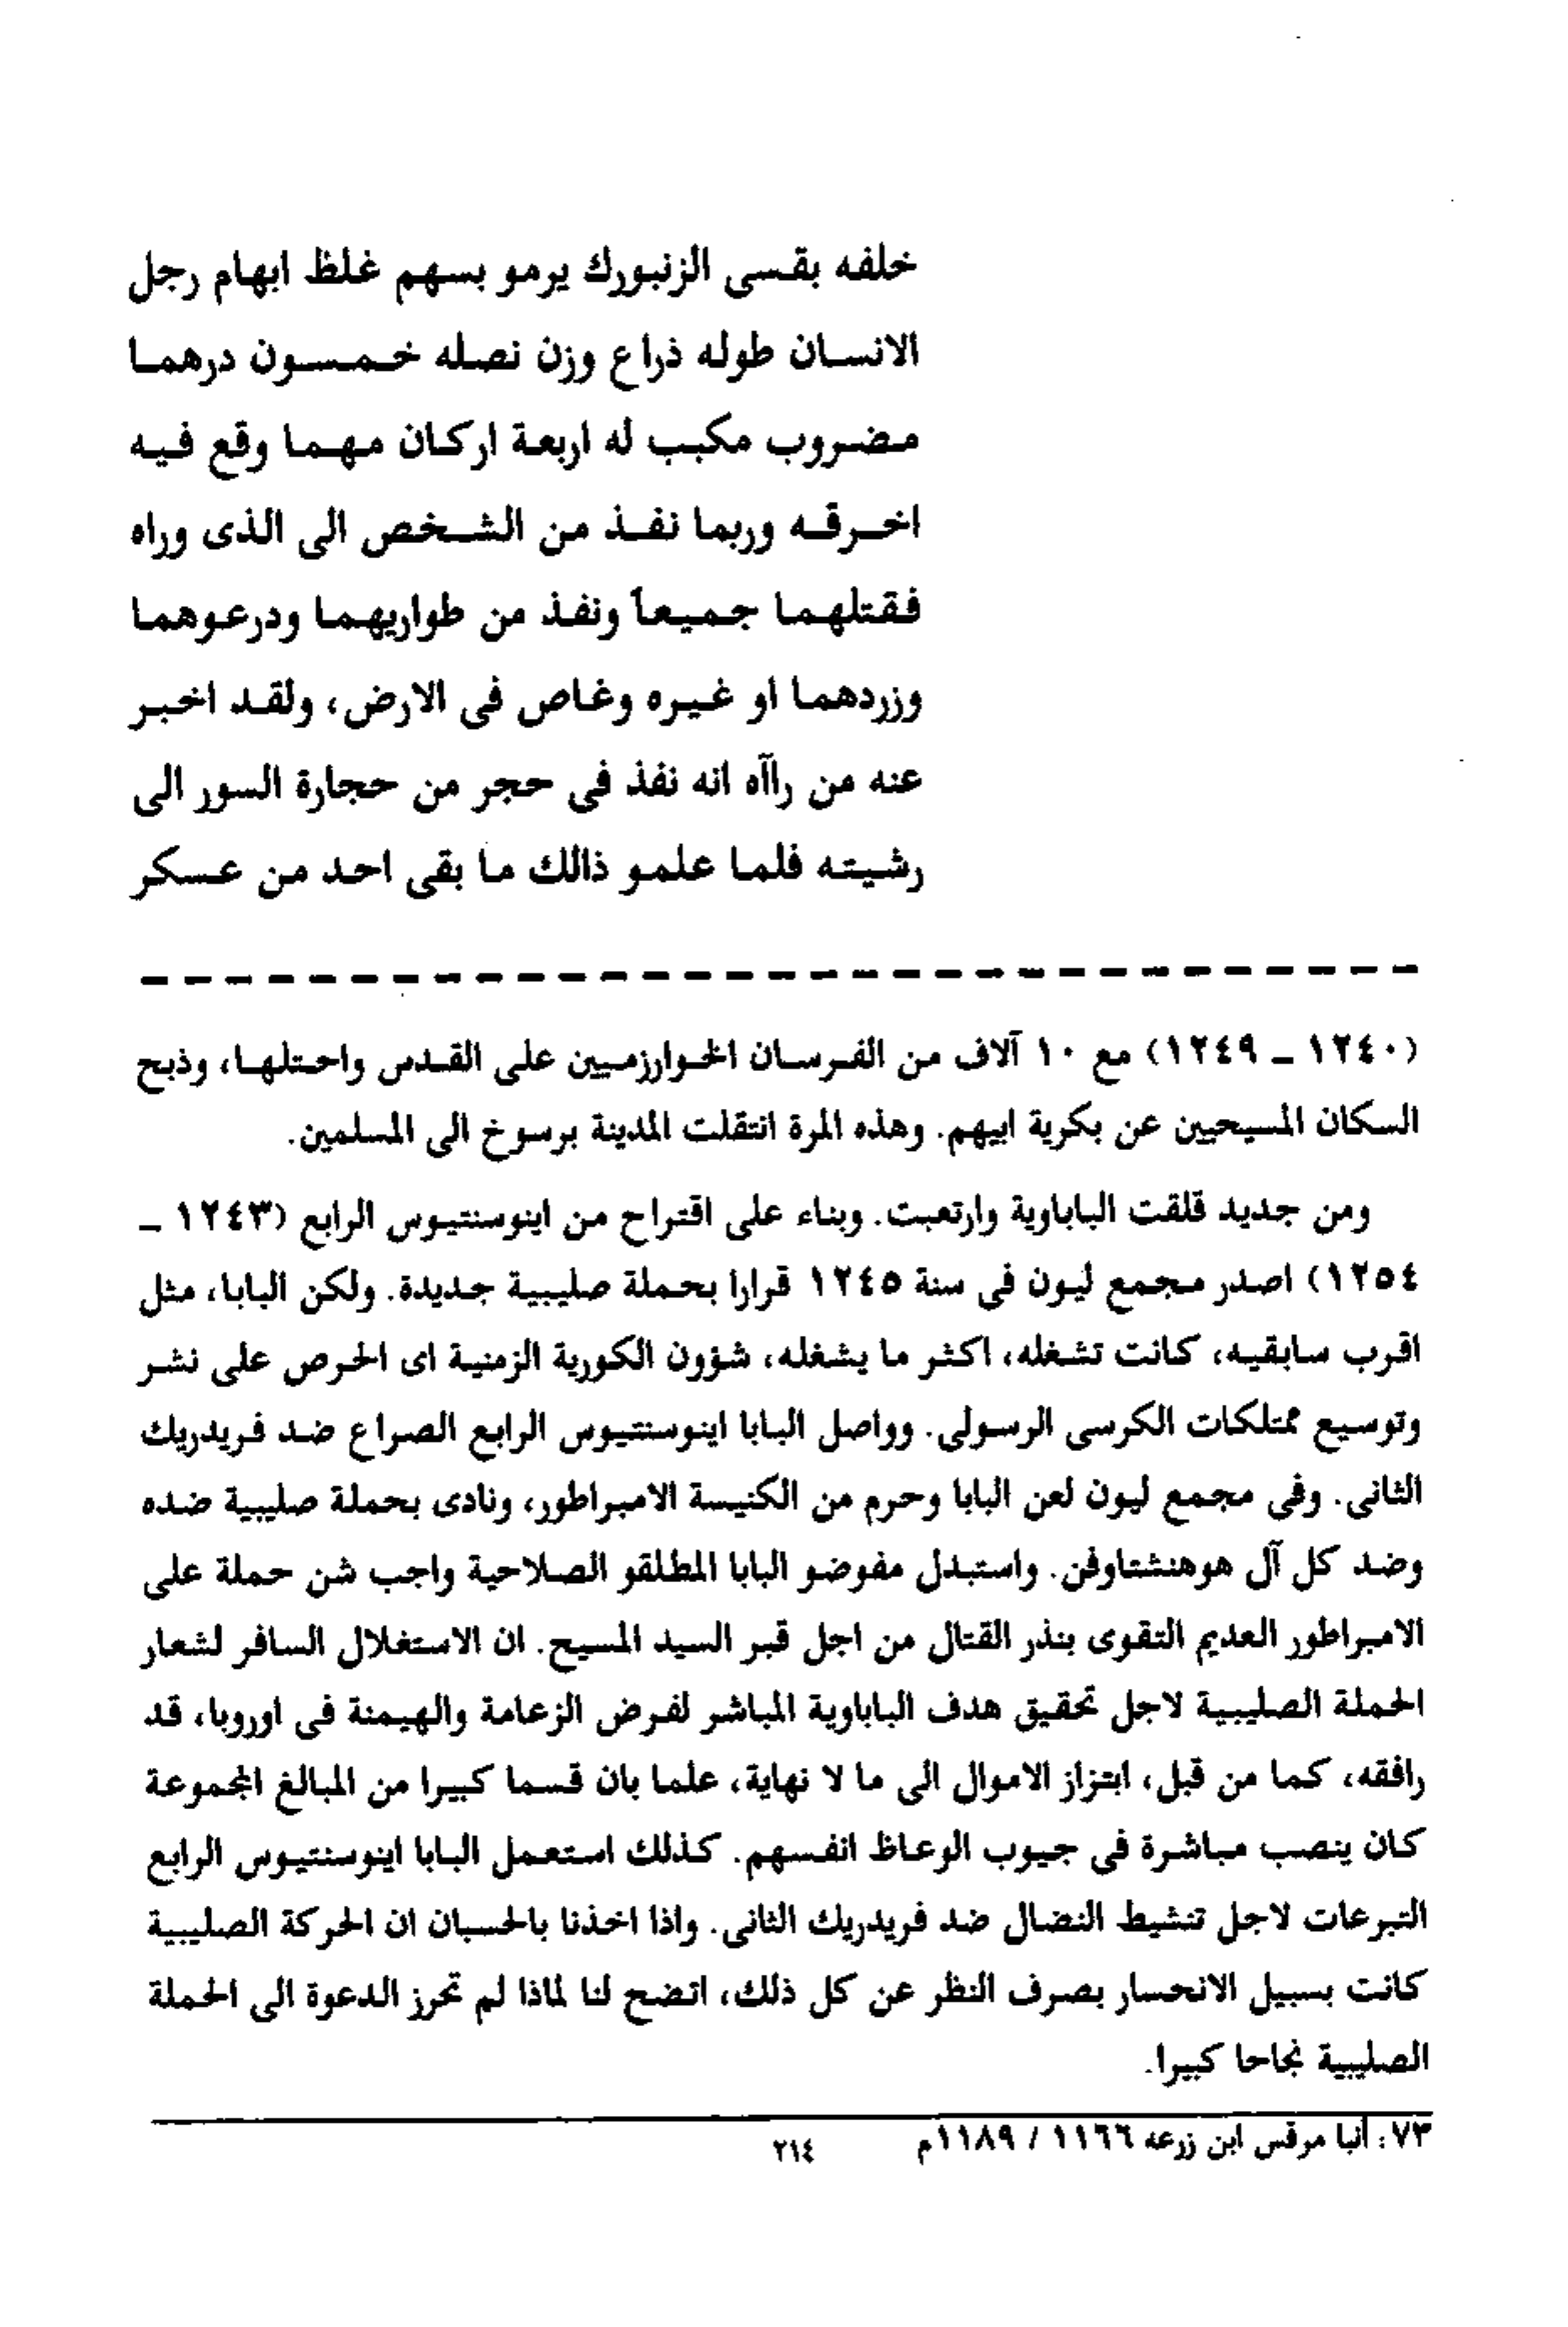 خلفه بقسى الزنبورك يرمو بسهم غلظ ابهام رجل
الانسان طوله ذراع وزن نصله خمسون درهما
مضروب مكبب له اربعة اركان مهما وقع فيه
اخرقه وربما نفذ من الشخص الى الذى وراه
فقتلهما جميعاً ونفذ من طواريهما ودرعوهما
وزردهما او غيره وغاص فى الارض، ولقد اخبر
عنه من راآه انه نفذ فى حجر من حجارة السور الى
رشيته فلما علمو ذالك ما بقى احد من عسكر
(١٢٤٠ - ١٢٤٩) مع ١٠ آلاف من الفرسان الخوارزميين على القدس واحتلها، وذبح
السكان المسيحيين عن بكرية ابيهم. وهذه المرة انتقلت المدينة برسوخ الى المسلمين.
ومن جديد قلقت الباباوية وارتعبت. وبناء على اقتراح من اينوسنتيوس الرابع (١٢٤٣ -
١٢٥٤) اصدر مجمع ليون فى سنة ١٢٤٥ قرارا بحملة صليبية جديدة. ولكن البابا، مثل
اقرب سابقيه، كانت تشغله، اكثر ما يشغله، شؤون الكورية الزمنية اى الحرص على نشر
وتوسيع ممتلكات الكرسى الرسولى. وواصل البابا اينوسنتيوس الرابع الصراع ضد فريدريك
الثانى. وفى مجمع ليون لعن البابا وحرم من الكنيسة الامبراطور، ونادى بحملة صليبية ضده
وضد كل آل هوهنشتاوفن. واستبدل مفوضو البابا المطلقو الصلاحية واجب شن حملة على
الامبراطور العديم التقوى بنذر القتال من اجل قبر السيد المسيح. ان الاستغلال السافر لشعار
الحملة الصليبية لاجل تحقيق هدف الباباوية المباشر لفرض الزعامة والهيمنة فى اوروبا، قد
رافقه، كما من قبل، ابتزاز الاموال الى ما لا نهاية، علما بان قسما كبيرا من المبالغ المجموعة
كان ينصب مباشرة فى جيوب الوعاظ انفسهم. كذلك استعمل البابا اينوسنتيوس الرابع
التبرعات لاجل تنشيط النضال ضد فريدريك الثانى. واذا اخذنا بالحسبان ان الحركة الصليبية
كانت بسبيل الانحسار بصرف النظر عن كل ذلك، اتضح لنا لماذا لم تحرز الدعوة الى الحملة
الصليبية نجاحا كبيرا.
٧٣: أنبا مرقس ابن زرعه ١١٦٦ / ١١٨٩م
٢١٤